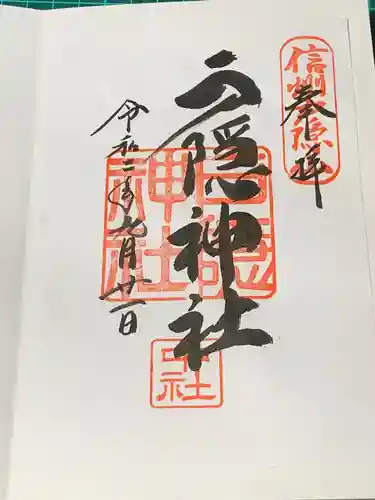 奉拝
信州戸隠
戸隠神社
戸隠神社
中社
令和二年九月廿一日